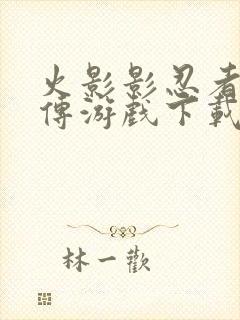 火影影忍者
傳游戲下載
林一歡